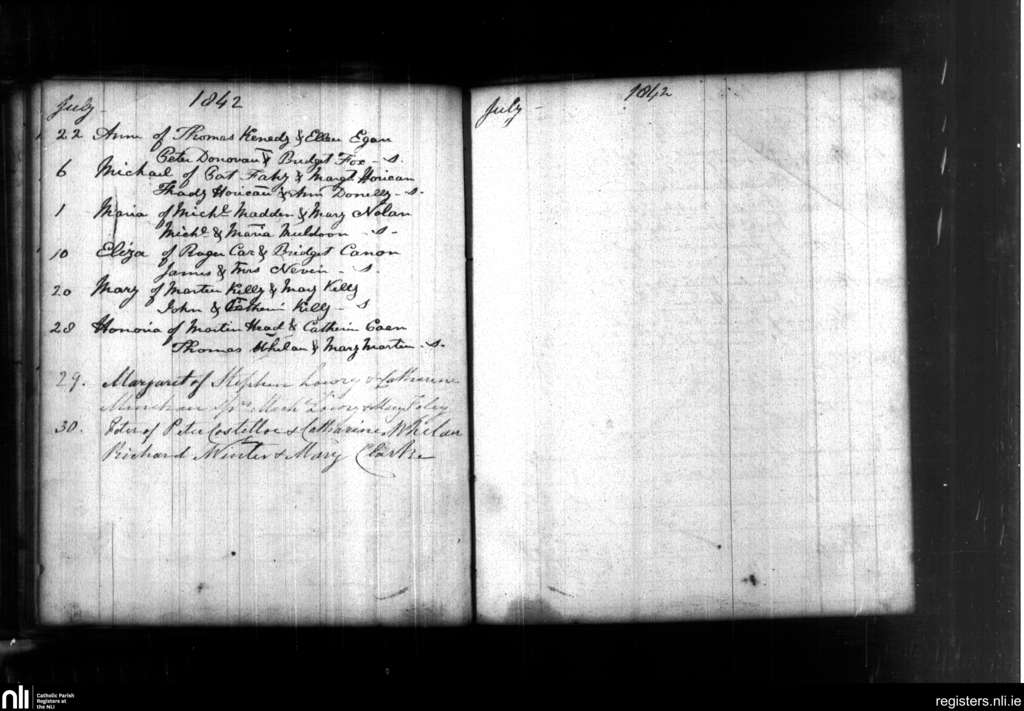 July 1842
22 Anne of Thomas Kenedy & Ellen Egan
Peter Donovan & Bridget Fox - s.
6 Michael of Pat Fahy & Margt Horican
Thady Horican & Ann Donelly - s.
1 Maria of Michl Madden & Mary Nolan
Michl & Maria Muldoon - s -
10 Eliza of Roger Car & Bridget Canon
James & Mrs Nevin - s.
20 Mary of Martin Killy & Mary Killy
John & Catherin Killy - s
28 Honoria of Martin Head & Catherin Coen
Thomas Whelan & Mary Martin - s.
29. Margaret of Stephen Lowry & Catharine
Lowry & Mary
30. Peter of Peter Costelloe & Catharine Whelan
Richard Winter & Mary Clarke
July - 1842
nli Catholic Parish
Registers at
the NLI
registers.nli.ie